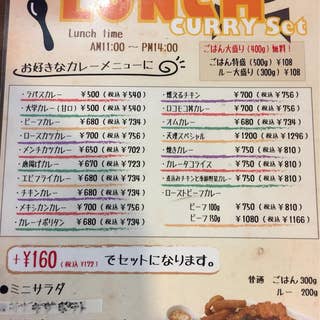 LUNCH
CURRY Set
Lunch time
AM11:00 ～ PM14:00
ごはん大盛り(400g)無料!
ごはん特盛(500g)¥108
ルー大盛り(300g)¥108
お好きなカレーメニューに
・ラパスカレー ¥500(税込¥540)
・大学カレー(甘口) ¥500(税込¥540)
・ビーフカレー ¥680(税込¥734)
・ロースカツカレー ¥750(税込¥810)
・メンチカツカレー ¥700(税込¥756)
・唐揚げカレー ¥670(税込¥723)
・エビフライカレー ¥680(税込¥734)
・チキンカレー ¥680(税込¥734)
・メキシカンカレー ¥700(税込¥756)
・カレーナポリタン ¥680(税込¥734)
・燃えるチキン ¥700(税込¥756)
・ロコモコ丼カレー ¥700(税込¥756)
・オムカレー ¥680(税込¥734)
・天凛スペシャル ¥1200(税込¥1296)
・焼きカレー ¥750(税込¥810)
・カレータコライス ¥750(税込¥810)
・煮込みチキンと季節野菜カレー ¥750(税込¥810)
・ローストビーフカレー
ビーフ100g ¥750(税込¥810)
ビーフ150g ¥1080(税込¥1166)
+¥160(税込¥172)でセットになります。
●ミニサラダ
普通 ごはん300g
ルー 200g